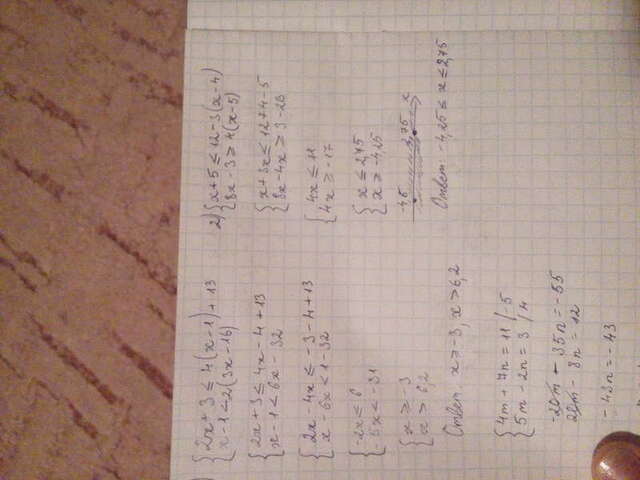 {2x + 3 ≤ 4(x - 1) + 13
{x - 1 < 2(3x - 16)
{2x + 3 ≤ 4x - 4 + 13
{x - 1 < 6x - 32
{2x - 4x ≤ -3 - 4 + 13
{x - 6x < 1 - 32
{-2x ≤ 6
{-5x < -31
{x ≥ -3
{x > 6,2
Ответ: x ≥ -3, x > 6,2
{4m + 7n = 11 / -5
{5m - 2n = 3 / 4
-20m - 35n = -55
20m - 8n = 12
- 43n = - 43
2) {x + 5 ≤ 12 - 3(x - 4)
{8x - 3 ≥ 4(x - 5)
{x + 3x ≤ 12 + 4 - 5
{8x - 4x ≥ 3 - 20
{4x ≤ 11
{4x ≥ -17
{x ≤ 2,75
{x ≥ -4,25
2,75 x
Ответ: -4,25 ≤ x ≤ 2,75